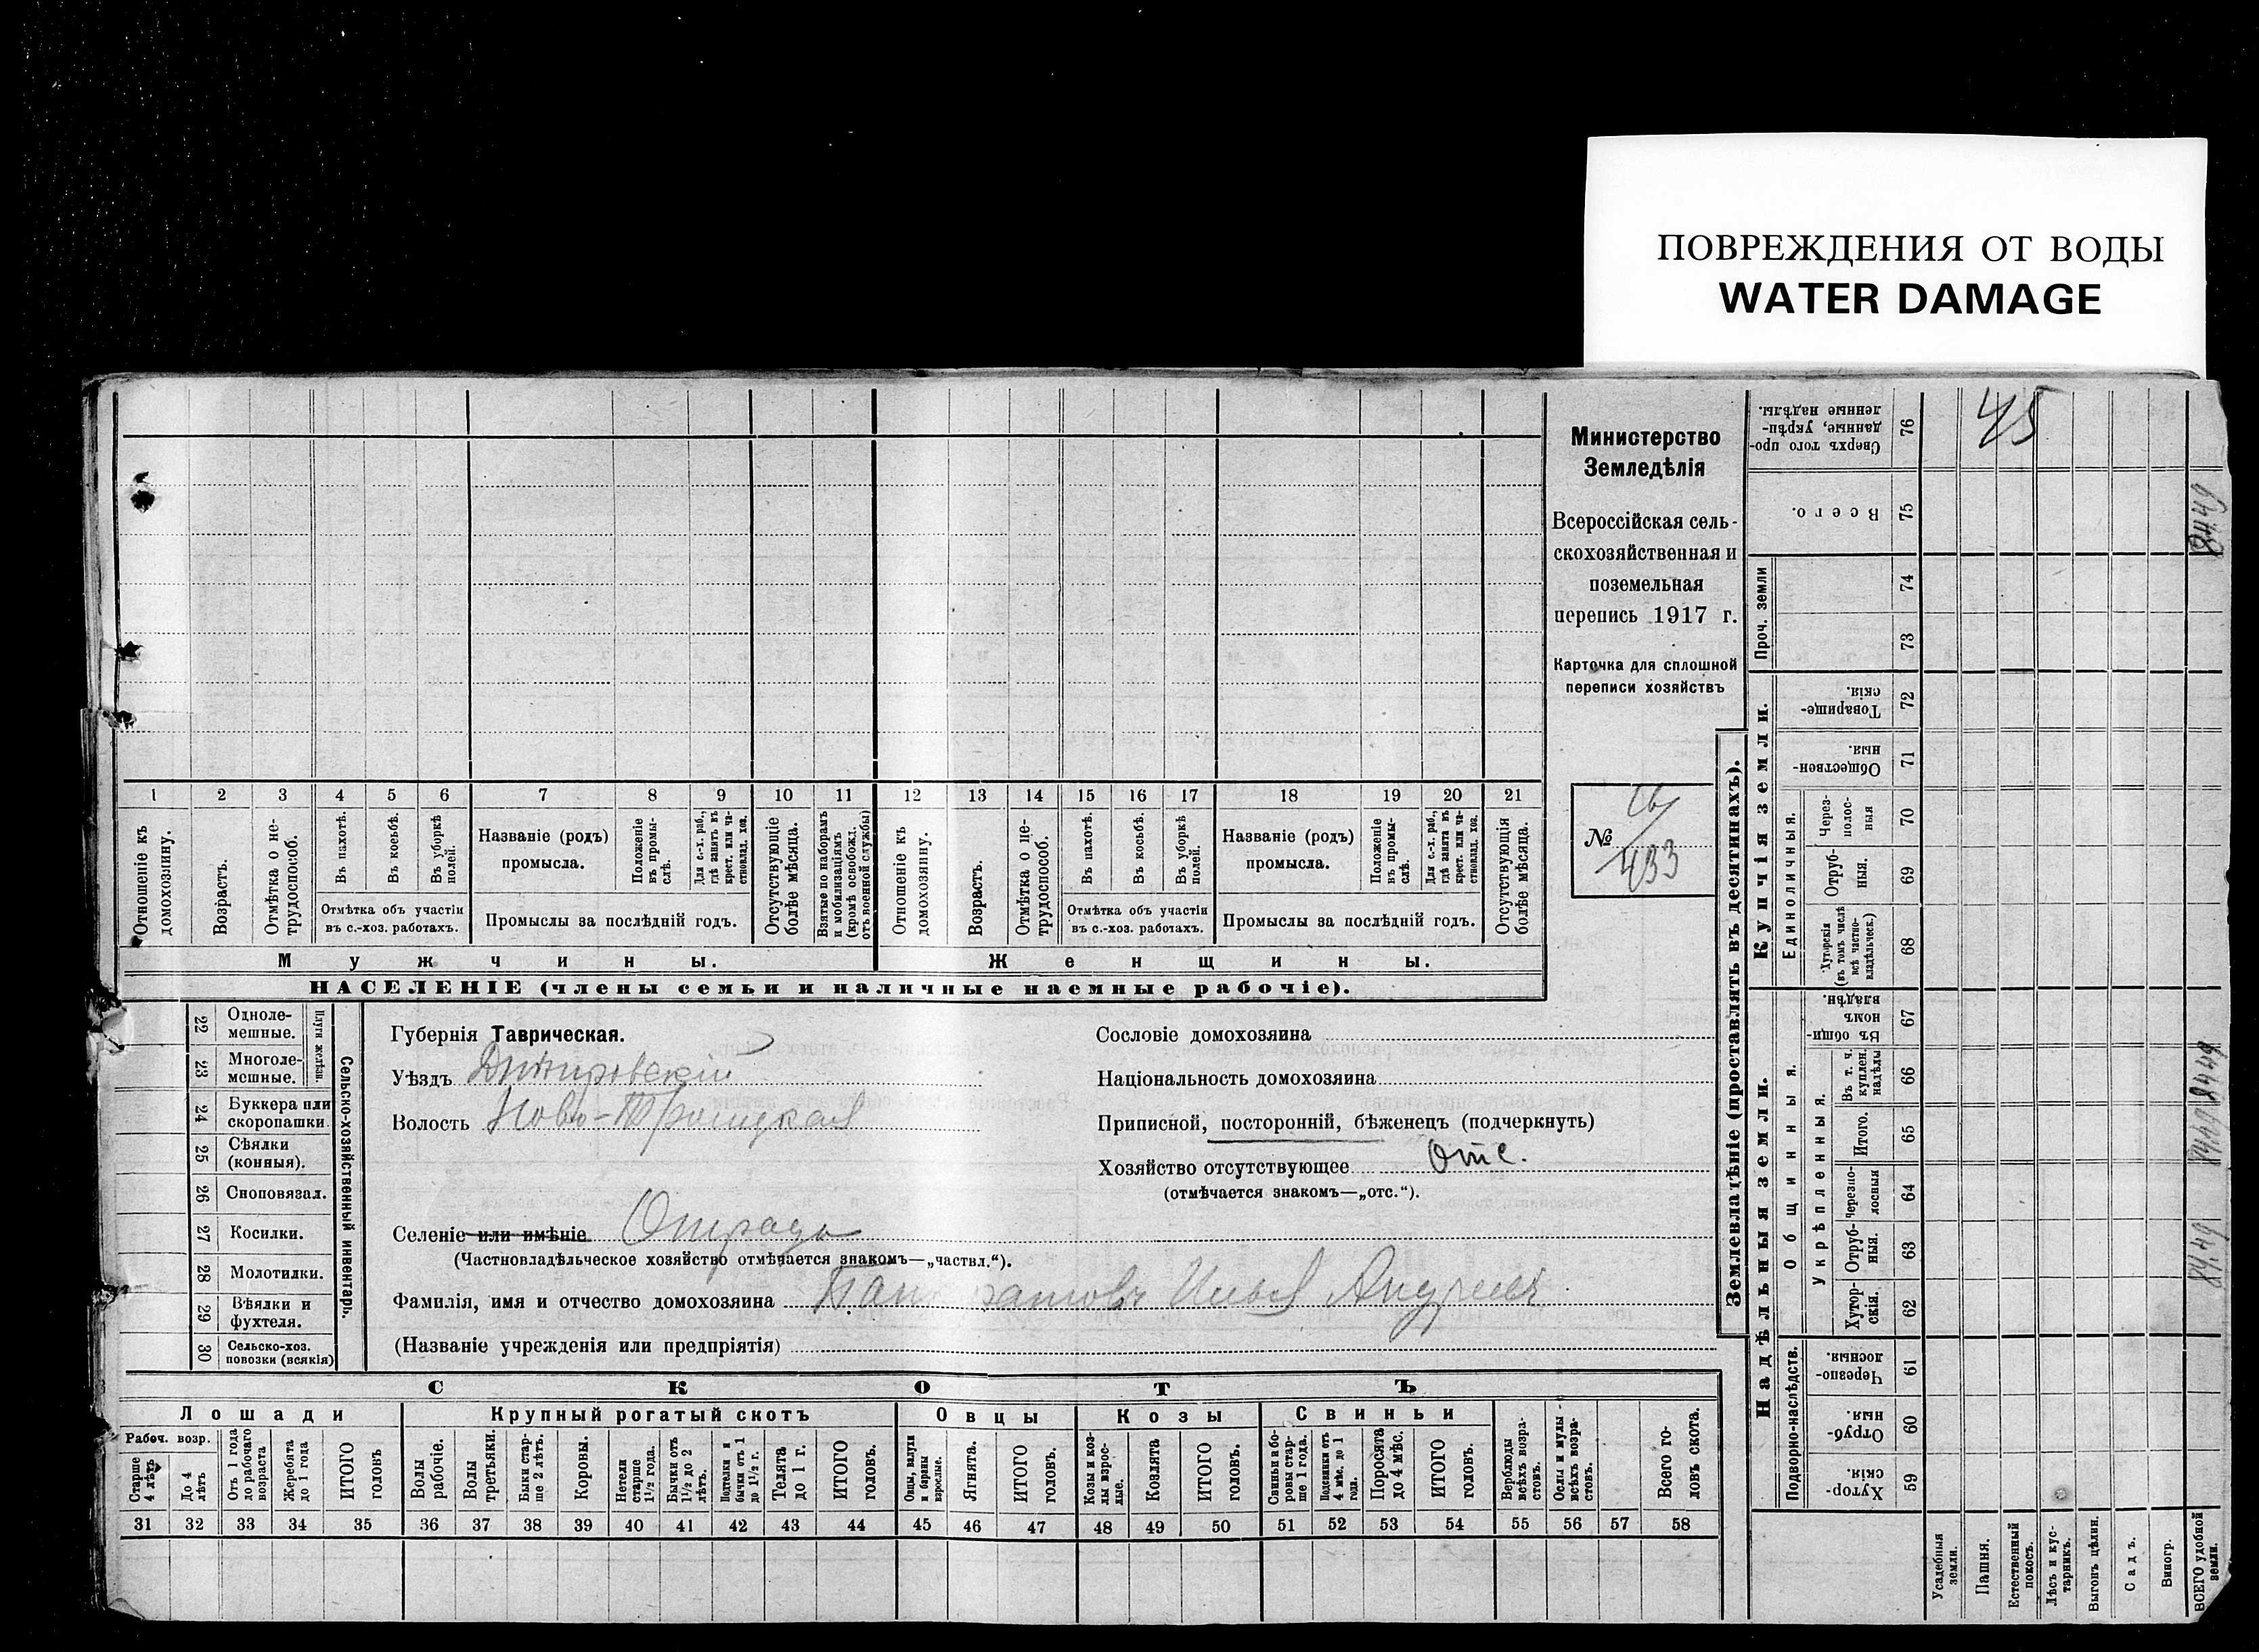 ПОВРЕЖДЕНИЯ ОТ ВОДЫ
WATER DAMAGE
Министерство
Земледѣлія
Всероссійская сель-
скохозяйственная и
поземельная
перепись 1917 г.
Карточка для сплошной
переписи хозяйствъ
№
433
1 2 3 4 5 6 7 8 9 10 11 12 13 14 15 16 17 18 19 20 21
Отношеніе къ домохозяину.
Возрастъ.
Отмѣтка о не-трудоспособ.
Въ пахотѣ.
Въ косьбѣ.
Въ уборкѣ полей.
Отмѣтка объ участіи
въ с.-хоз. работахъ.
Названіе (родъ)
промысла.
Положеніе въ промы-слѣ.
Для с.-х. раб., гдѣ занятъ въ крест. или ча-стновлад. хоз.
Промыслы за послѣдній годъ.
Отсутствующіе болѣе мѣсяца.
Взятые по наборамъ и мобилизаціямъ (кромѣ освобожд. отъ военной службы)
Отношеніе къ домохозяину.
Возрастъ.
Отмѣтка о не-трудоспособ.
Въ пахотѣ.
Въ косьбѣ.
Въ уборкѣ полей.
Отмѣтка объ участіи
въ с.-хоз. работахъ.
Названіе (родъ)
промысла.
Положеніе въ промы-слѣ.
Для с.-х. раб., гдѣ занятъ въ крест. или ча-стновлад. хоз.
Промыслы за послѣдній годъ.
Отсутствующія болѣе мѣсяца.
Мужчины.
Женщины.
НАСЕЛЕНІЕ (члены семьи и наличные наемные рабочіе).
Сельско-хозяйственный инвентарь.
Плуги желѣзн.
22 Одноле-мешные.
23 Многоле-мешные.
24 Буккера или скоропашки.
25 Сѣялки (конныя).
26 Сноповязал.
27 Косилки.
28 Молотилки.
29 Вѣялки и фухтеля.
30 Сельско-хоз. повозки (всякія)
Губернія Таврическая.
Уѣздъ Днѣпровскій
Волость Ново-Троицкая
Селеніе или имѣніе Отрада
(Частновладѣльческое хозяйство отмѣчается знакомъ—„частвл.“).
Фамилія, имя и отчество домохозяина Илья Андреевъ
(Названіе учрежденія или предпріятія)
Сословіе домохозяина
Національность домохозяина
Приписной, посторонній, бѣженецъ (подчеркнуть)
Хозяйство отсутствующее Отс.
(отмѣчается знакомъ—„отс.“).
СКОТЪ
Лошади
Крупный рогатый скотъ
Овцы
Козы
Свиньи
Рабоч. возр.
Старше 4 лѣтъ
До 4 лѣтъ
Отъ 1 года до рабочаго возраста
Жеребята до 1 года
ИТОГО головъ
Волы рабочіе.
Волы третьяки.
Быки стар-ше 2 лѣтъ.
Коровы.
Нетели старше 1½ года.
Бычки отъ 1½ до 2 лѣтъ.
Подтелки и бычки отъ 1 до 1½ г.
Телята до 1 г.
ИТОГО головъ.
Овцы, валухи и бараны взрослые.
Ягнята.
ИТОГО головъ.
Козы и коз-лы взрос-лые.
Козлята
ИТОГО головъ.
Свиньи и бо-ровы стар-ше 1 года.
Подсвинки отъ 4 мѣс. до 1 года.
Поросята до 4 мѣс.
ИТОГО головъ.
Верблюды всѣхъ возра-стовъ.
Ослы и мулы всѣхъ возра-стовъ.
Всего го-ловъ скота.
31 32 33 34 35 36 37 38 39 40 41 42 43 44 45 46 47 48 49 50 51 52 53 54 55 56 57 58
Землевладѣніе (проставлять въ десятинахъ).
Надѣльныя земли.
Купчія земли.
Проч. земли
Подворно-наслѣдств.
Общинныя.
Укрѣпленныя.
Единоличныя.
76 Сверхъ того про-данные, укрѣп-ленные надѣлы.
75 Всего.
74
73
72 Товарище-скія.
71 Обществен-ныя.
70 Через-полос-ныя
69 Отруб-ныя.
68 Хуторскія (въ томъ числѣ всѣ частно-владѣльческ.)
67 Въ общин-номъ владѣн.
66 Въ т. ч. куплен. надѣлы
65 Итого.
64 Черезпо-лосныя
63 Отруб-ныя.
62 Хутор-скія.
61 Черезпо-лосныя.
60 Отруб-ныя.
59 Хутор-скія.
Усадебныя земли.
Пашня.
Естественный покосъ.
Лѣсъ и кус-тарникъ.
Выгонъ цѣлин.
Садъ.
Виногр.
ВСЕГО удобной земли.
45
8449
8449
8449